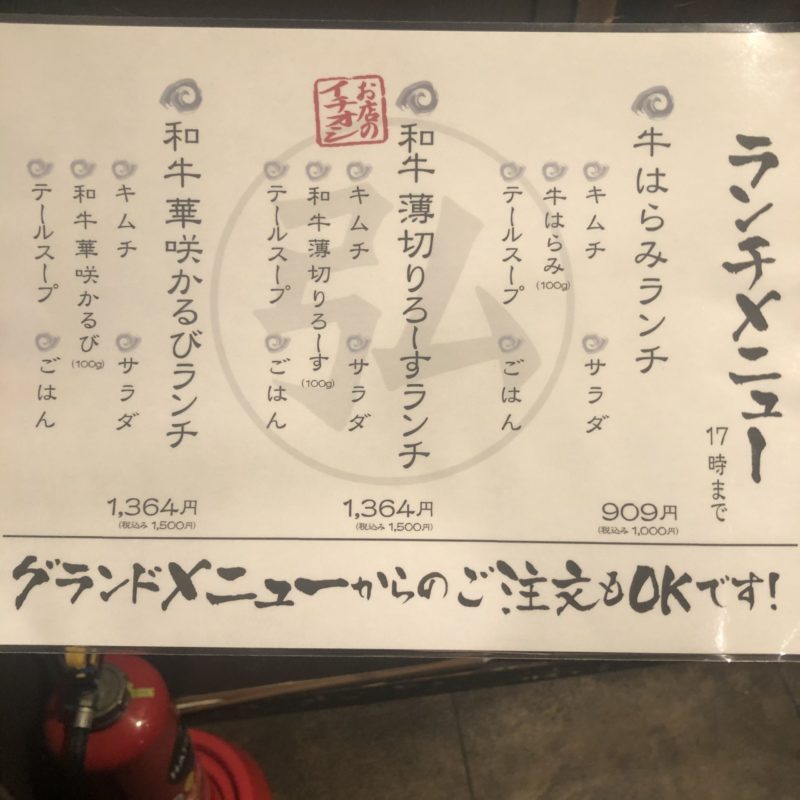 ランチメニュー
17時まで
牛はらみランチ
キムチ
サラダ
牛はらみ(100g)
テールスープ
ごはん
909円
(税込み 1,000円)
お店の
イチオシ
和牛 薄切りろーすランチ
キムチ
サラダ
和牛薄切りろーす(100g)
テールスープ
ごはん
1,364円
(税込み 1,500円)
和牛 華咲かるびランチ
キムチ
サラダ
和牛 華咲かるび(100g)
テールスープ
ごはん
1,364円
(税込み 1,500円)
弘
グランドメニューからのご注文もOKです!